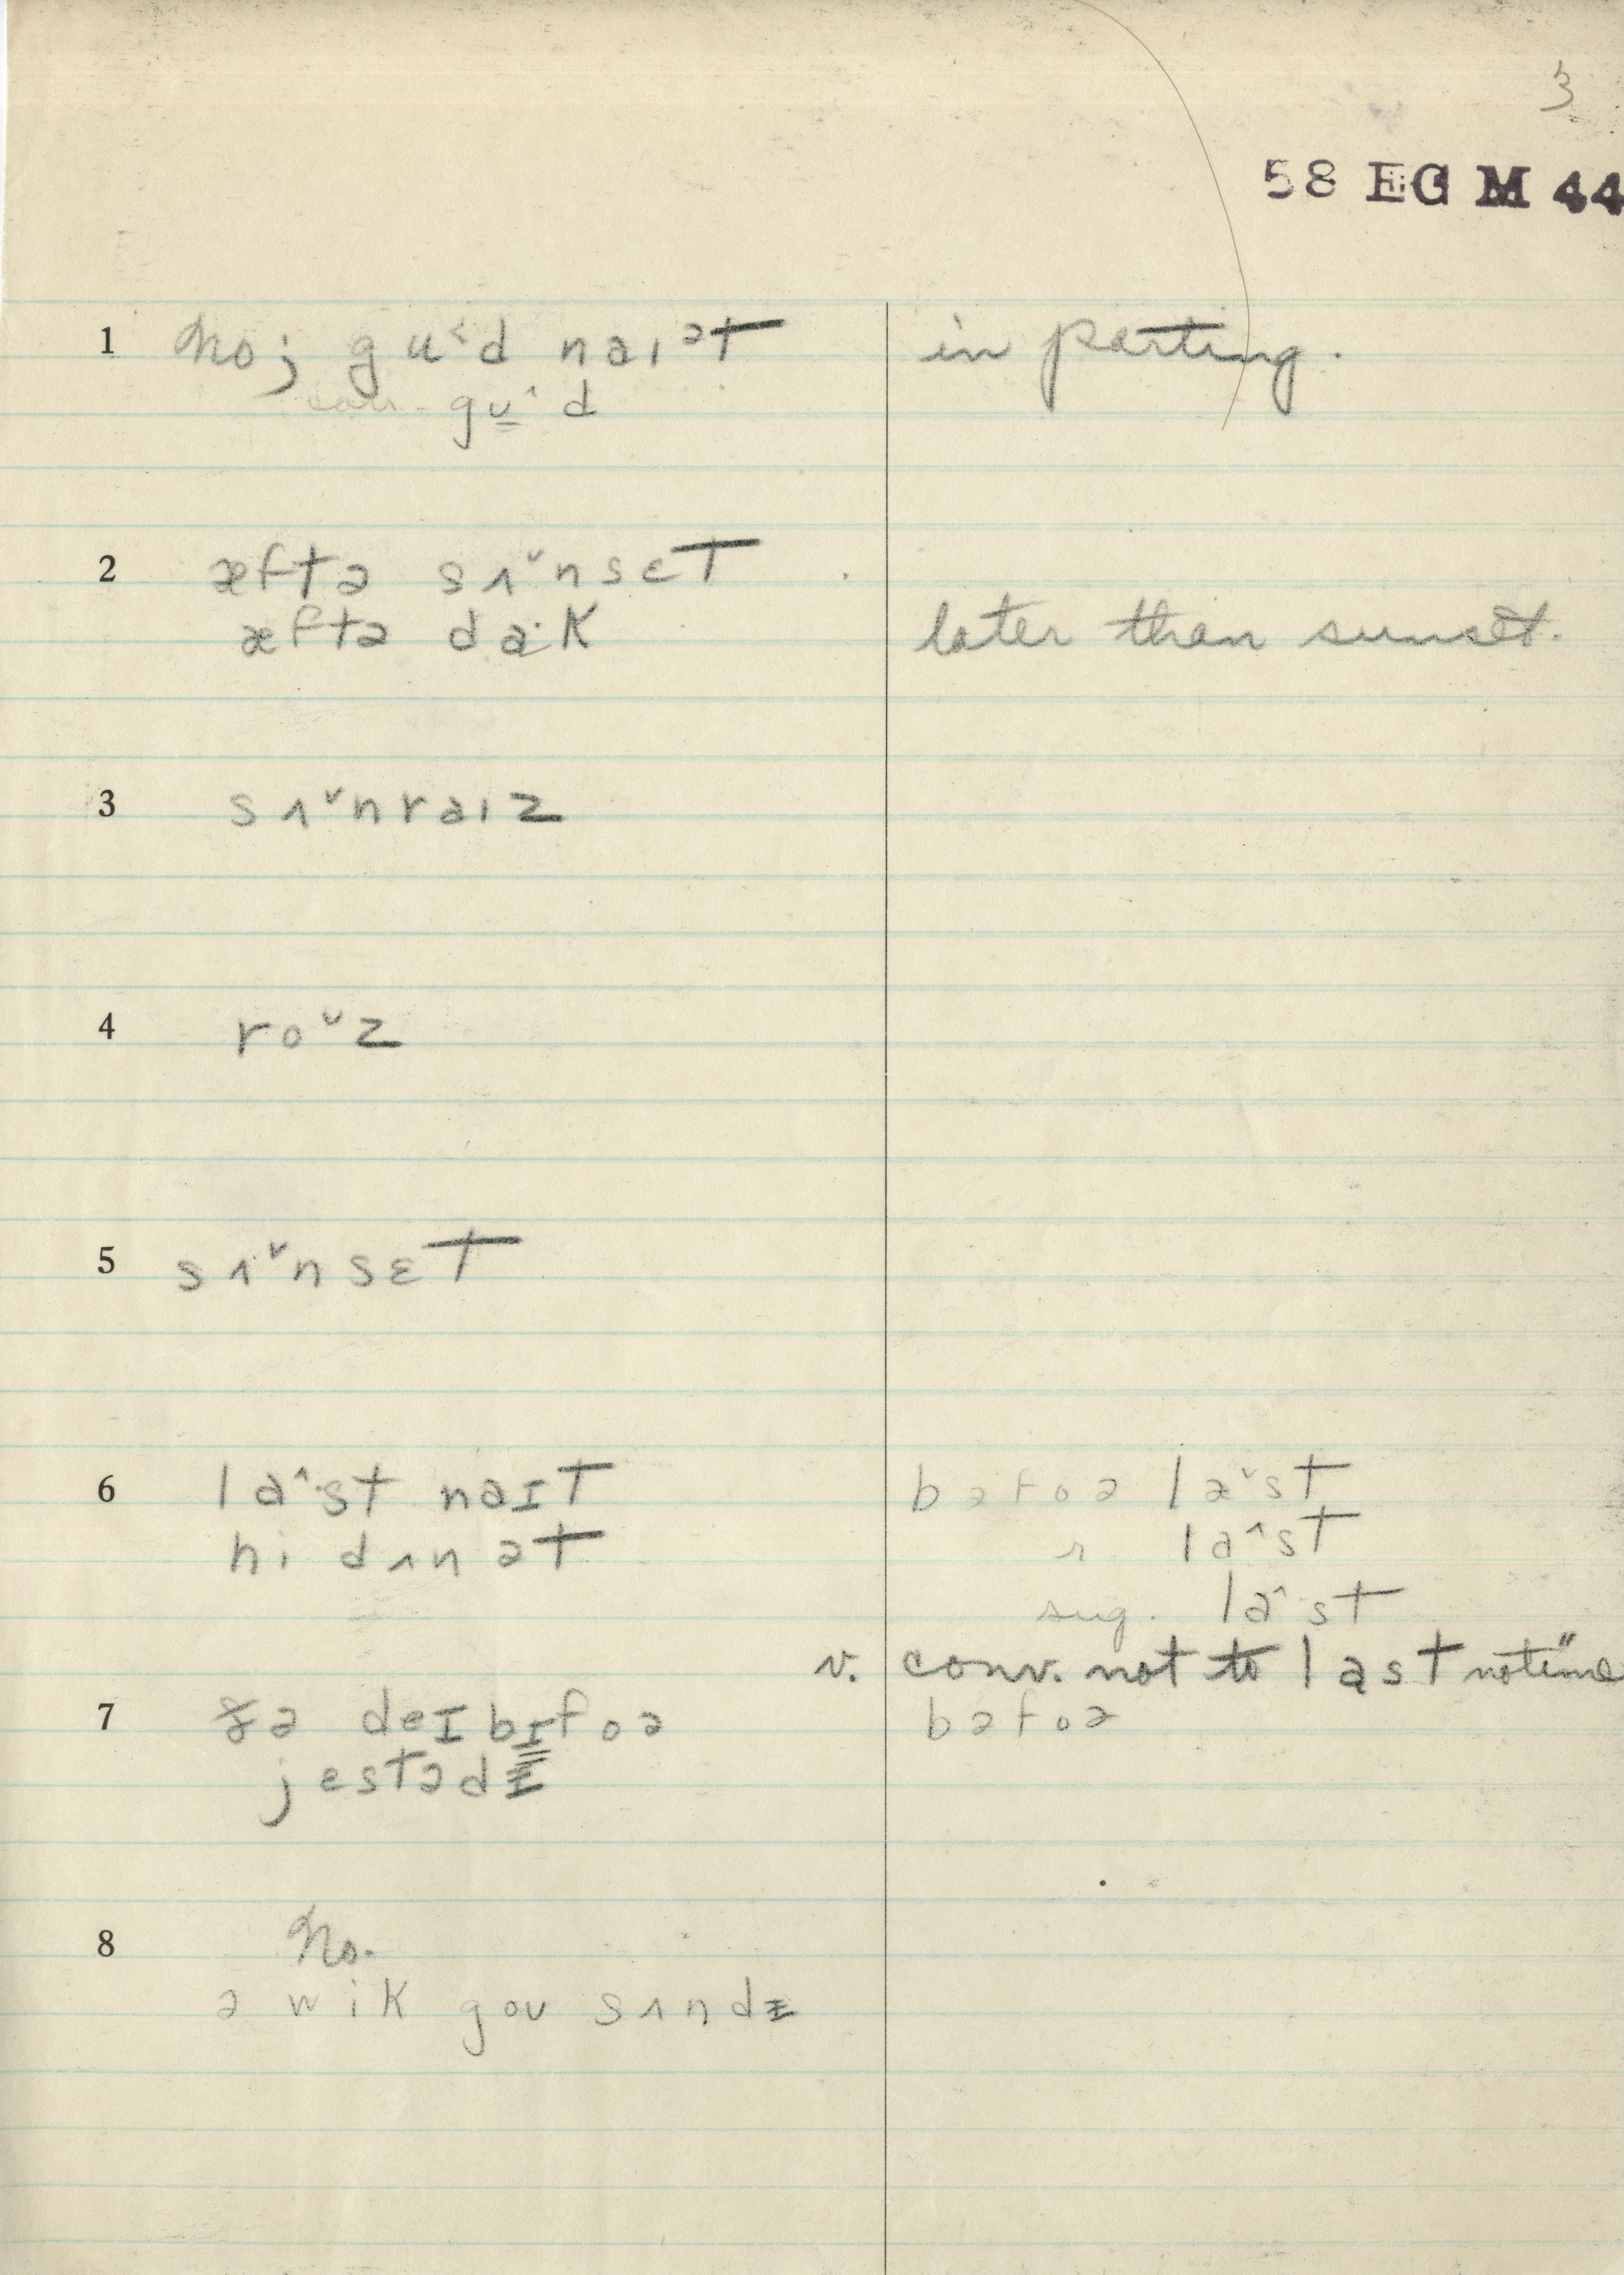 3
58 EG M 44
1 No; gu˂d naɪᵊt in parting.
conv. gu̲˄d
2 æftə sʌ˅nsɛt
æftə da·k later than sunset.
3 sʌ˅nraɪz
4 ro˅z
5 sʌ˅nsɛt
6 la˄st naɪt bəfoə læ˅st
hi dʌnət r la˄st
sug. la˄st
v. conv. not to last not
7 ðə deɪ bɪfoə bəfoə
jɛstədɪ
8 No.
ə wik gou sʌndɪ